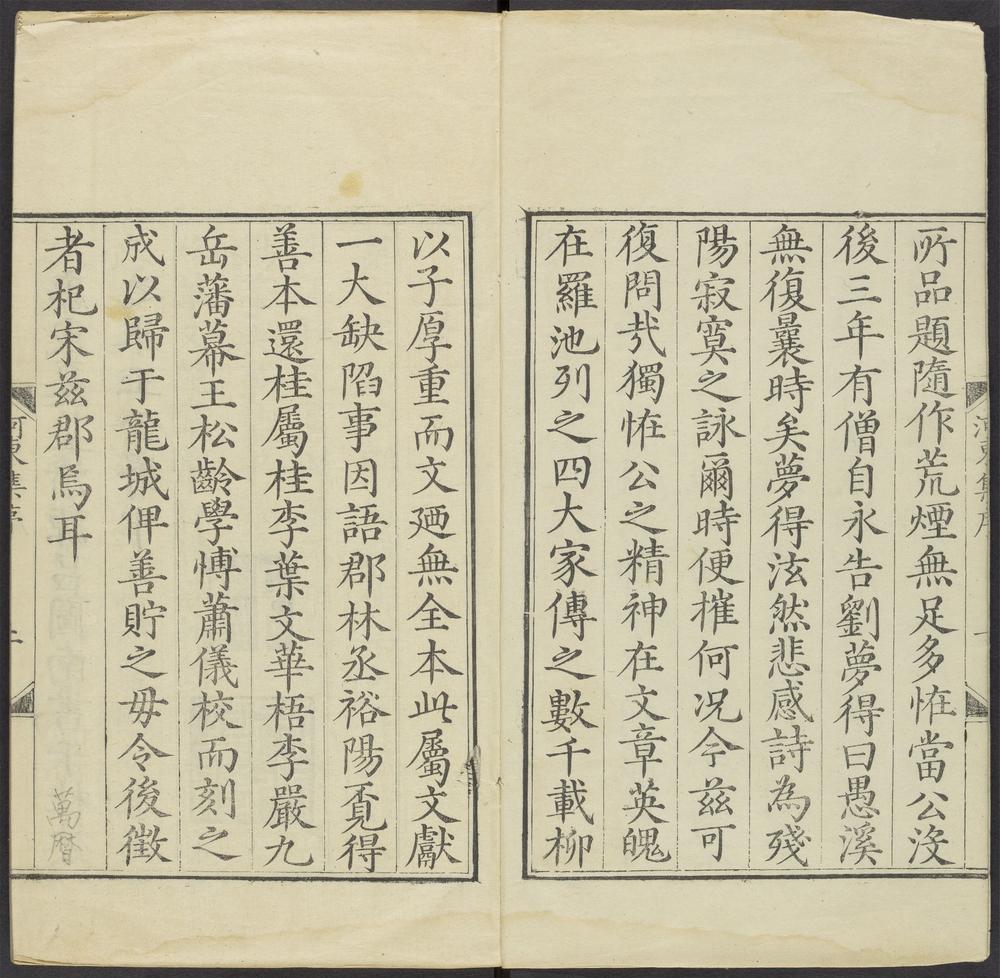 所品題隨作荒煙無足多恠當公沒
後三年有僧自永告劉夢得曰愚溪
無復曩時矣夢得泫然悲感詩為殘
陽寂寞之詠爾時便摧何况今茲可
復問㢤獨恠公之精神在文章英魄
在羅池列之四大家傳之數千載柳
以子厚重而文廼無全本此屬文獻
一大缺陷事因語郡林丞裕陽覔得
善本還桂屬桂李葉文華梧李嚴九
岳藩幕王松齡學愽蕭儀校而刻之
成以歸于龍城俾善貯之毋令後徵
者杞宋茲郡焉耳
萬曆
河東集序